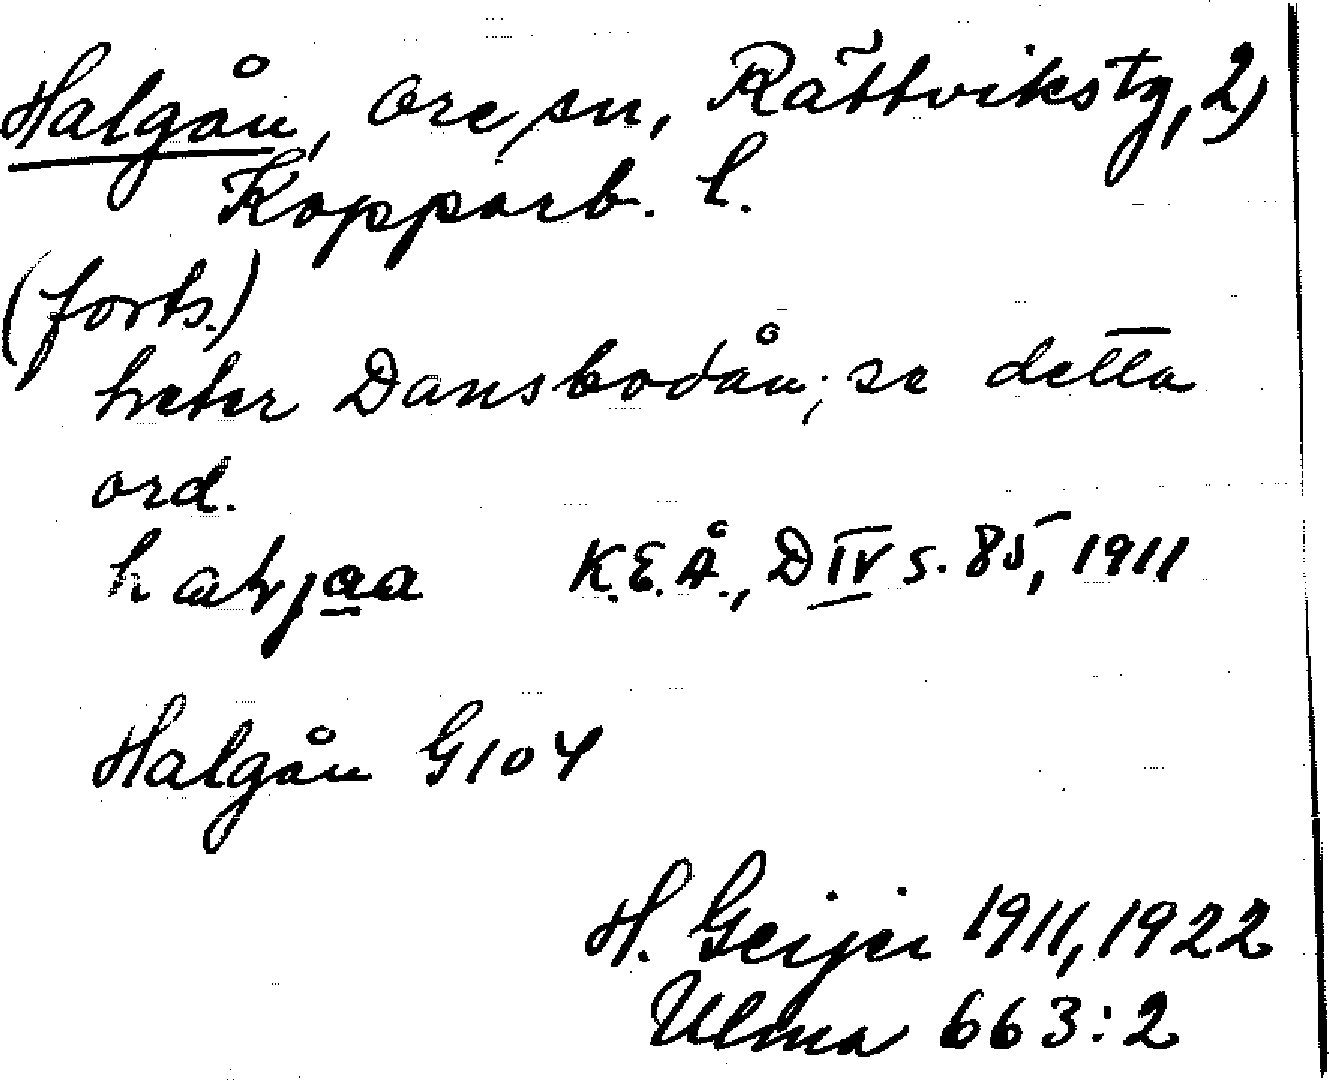 Halgån, Ore sn, Rättvikstg, 2)
Kopparb. l.
(forts.)
heter Dansbodån; se detta
ord.
K.E.Å., D IV s. 85, 1911
Halgån G104
H. Geijer 1911, 1922
Ulma 663:2